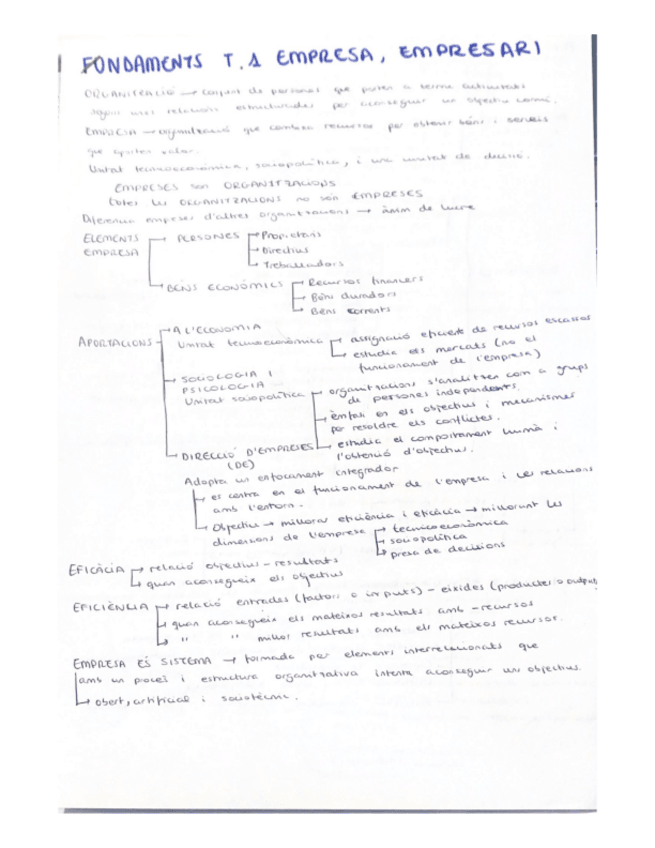 FONDAMENTS T.1 EMPRESA, EMPRESARI
ORGANITZACIÓ → conjunt de persones que porten a terme activitats
segons unes relacions estructurades per aconseguir un objectiu comú.
EMPRESA → organització que combina recursos per obtenir béns i serveis
que aporten valor.
Unitat tecnicoeconòmica, sociopolítica, i una unitat de decisió.
EMPRESES són ORGANITZACIONS
totes les ORGANITZACIONS no són EMPRESES
Diferencien empreses d'altres organitzacions → ànim de lucre
ELEMENTS EMPRESA
PERSONES
Propietaris
Directius
Treballadors
BÉNS ECONÒMICS
Recursos financers
Béns duradors
Béns corrents
APORTACIONS
A L'ECONOMIA
Unitat tecnoeconòmica
→ assignació eficient de recursos escassos
→ estudia els mercats (no el
funcionament de l'empresa)
SOCIOLOGIA I
PSICOLOGIA
Unitat sociopolítica
→ organitzacions s'analitzen com a grups
de persones independents.
→ èmfasi en els objectius i mecanismes
per resoldre els conflictes.
→ estudia el comportament humà i
l'obtenció d'objectius.
DIRECCIÓ D'EMPRESES
(DE)
Adopta un enfocament integrador
→ es centra en el funcionament de l'empresa i les relacions
amb l'entorn.
→ Objectiu → millorar eficiència i eficàcia → millorant les
dimensions de l'empresa
→ tecnicoeconòmica
→ sociopolítica
→ presa de decisions
EFICÀCIA → relació objectius - resultats
→ quan aconsegueix els objectius
EFICIÈNCIA → relació entrades (factors o inputs) - eixides (productes o output
→ quan aconsegueix els mateixos resultats amb - recursos
→ " " millor resultats amb els mateixos recursos.
EMPRESA ÉS SISTEMA → formada per elements interrelacionats que
amb un procés i estructura organitzativa intenta aconseguir uns objectius.
→ obert, artificial i sociotècnic.